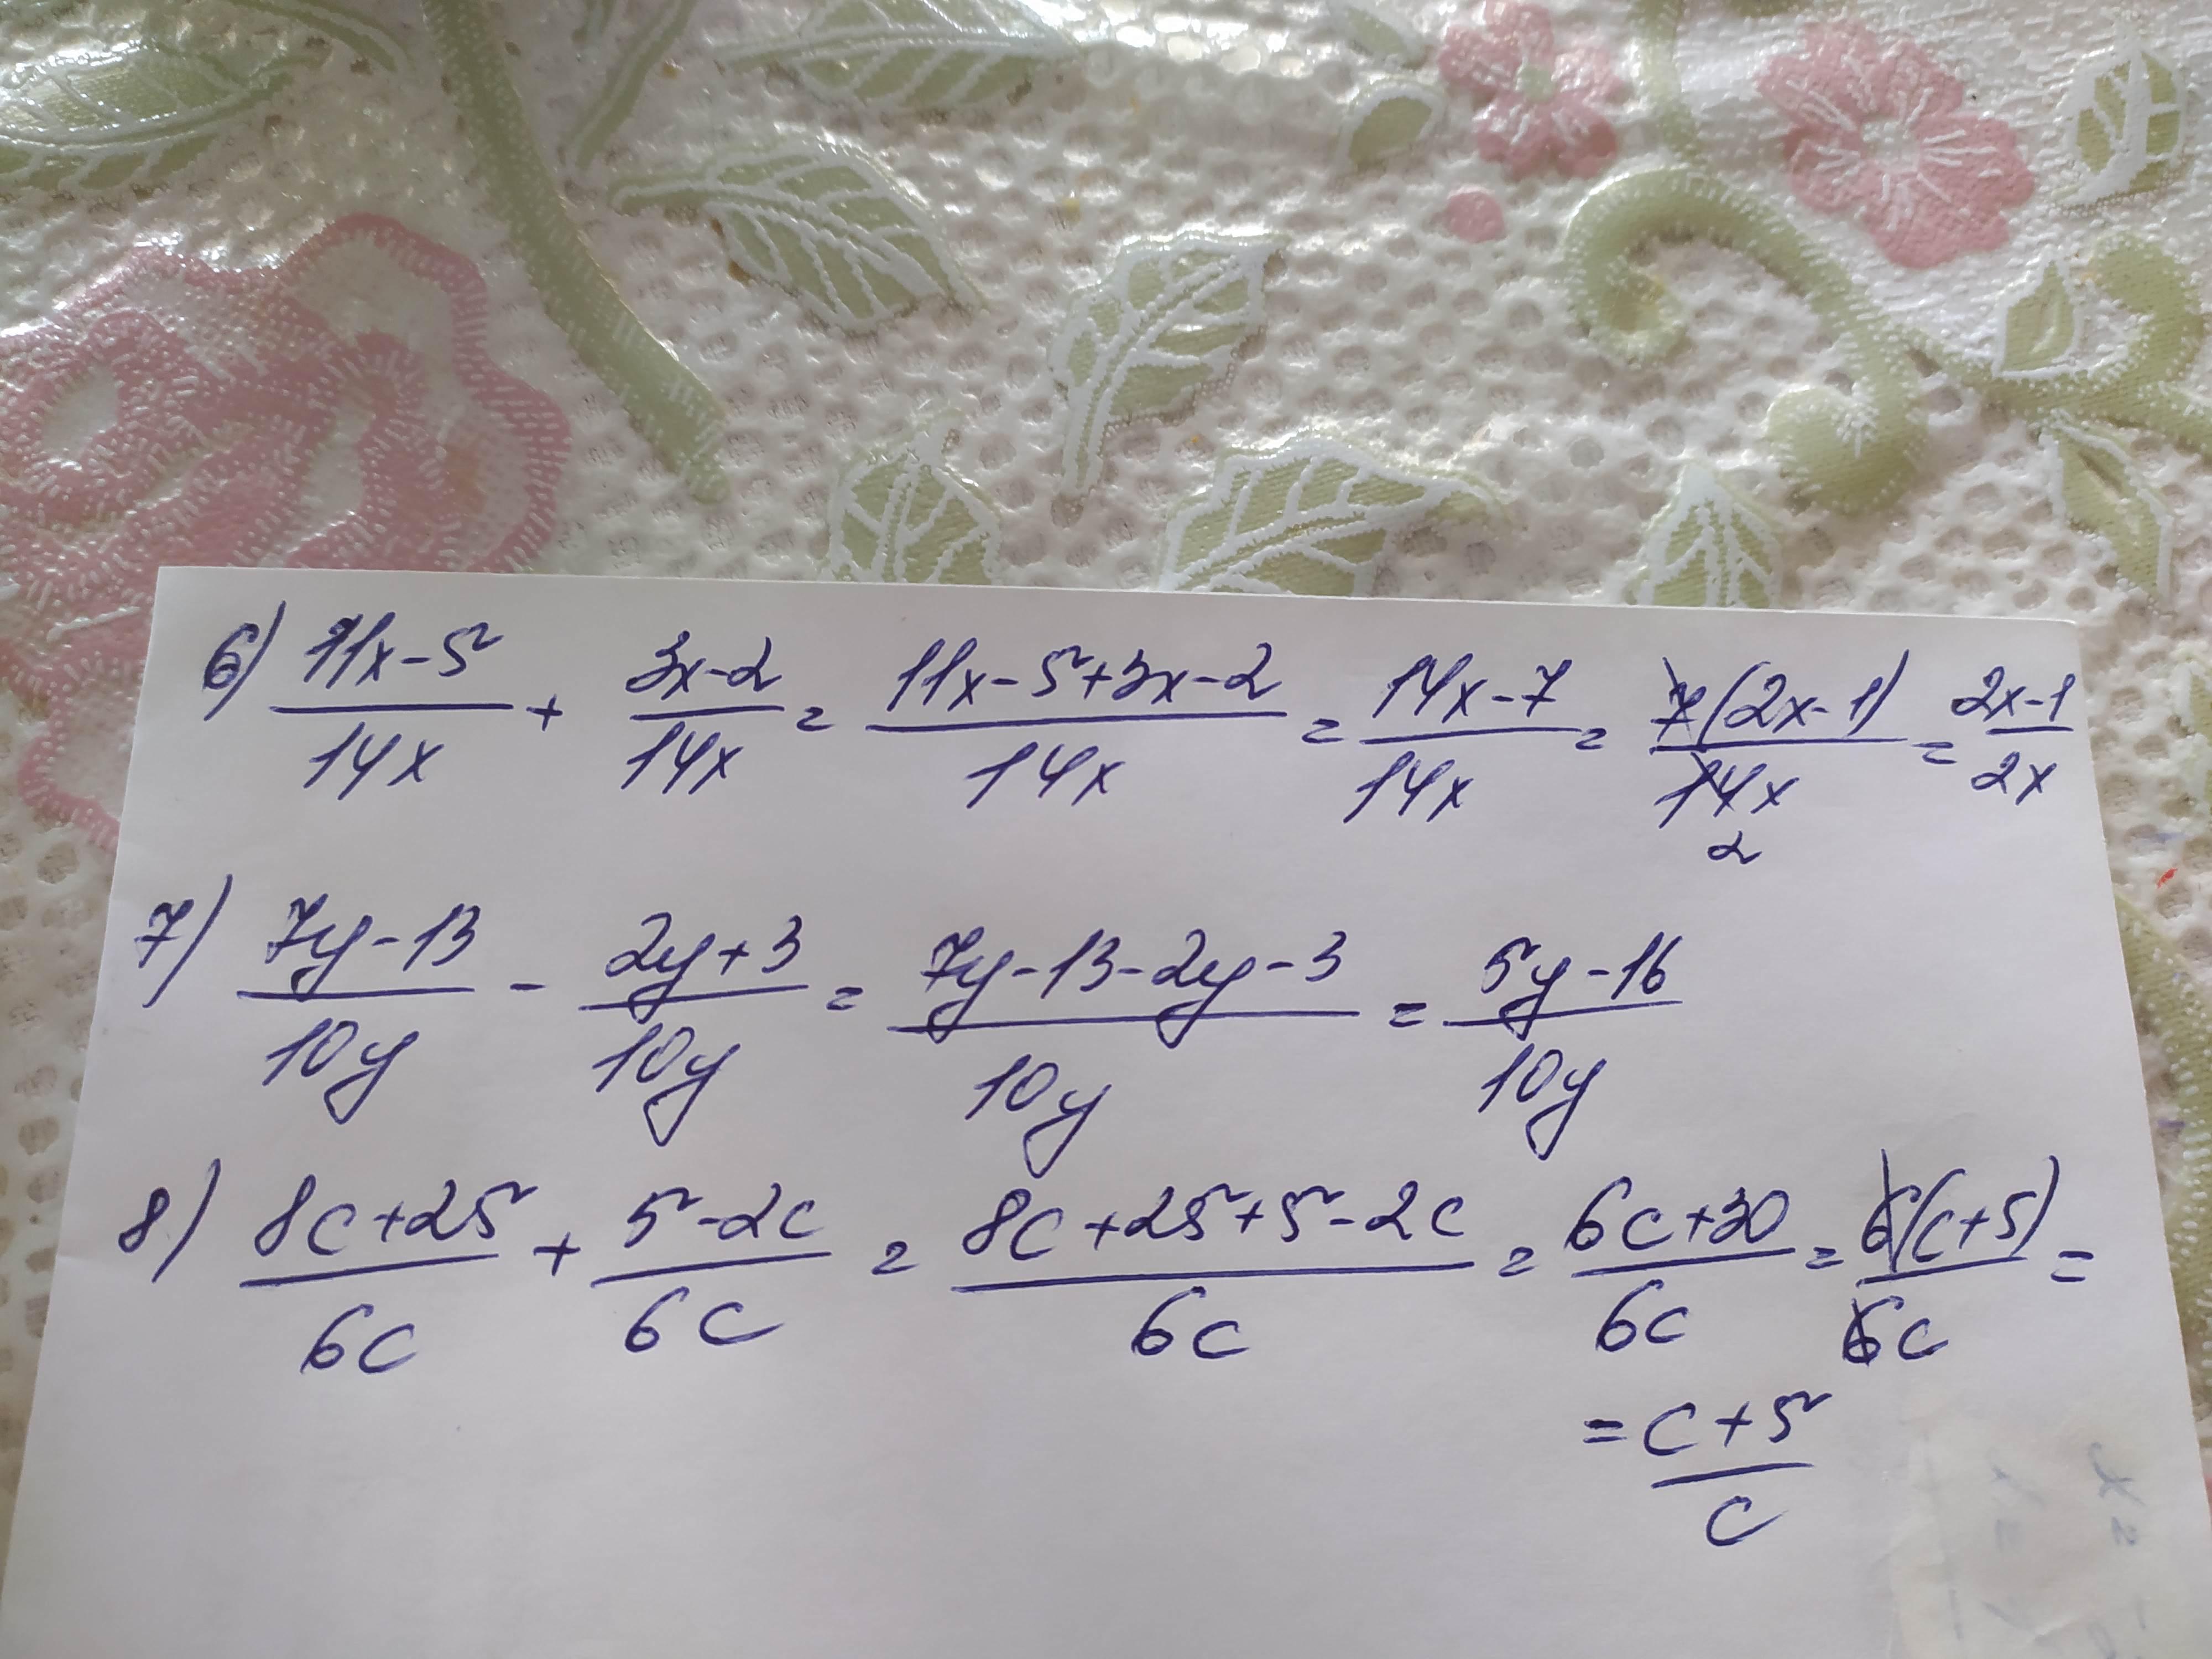 6) (11x-5)/(14x) + (3x-2)/(14x) = (11x-5+3x-2)/(14x) = (14x-7)/(14x) = (7(2x-1))/(14x) = (2x-1)/(2x)
2
7) (7y-13)/(10y) - (2y+3)/(10y) = (7y-13-2y-3)/(10y) = (5y-16)/(10y)
8) (8c+25)/(6c) + (5-2c)/(6c) = (8c+25+5-2c)/(6c) = (6c+30)/(6c) = (6(c+5))/(6c) =
= (c+5)/c